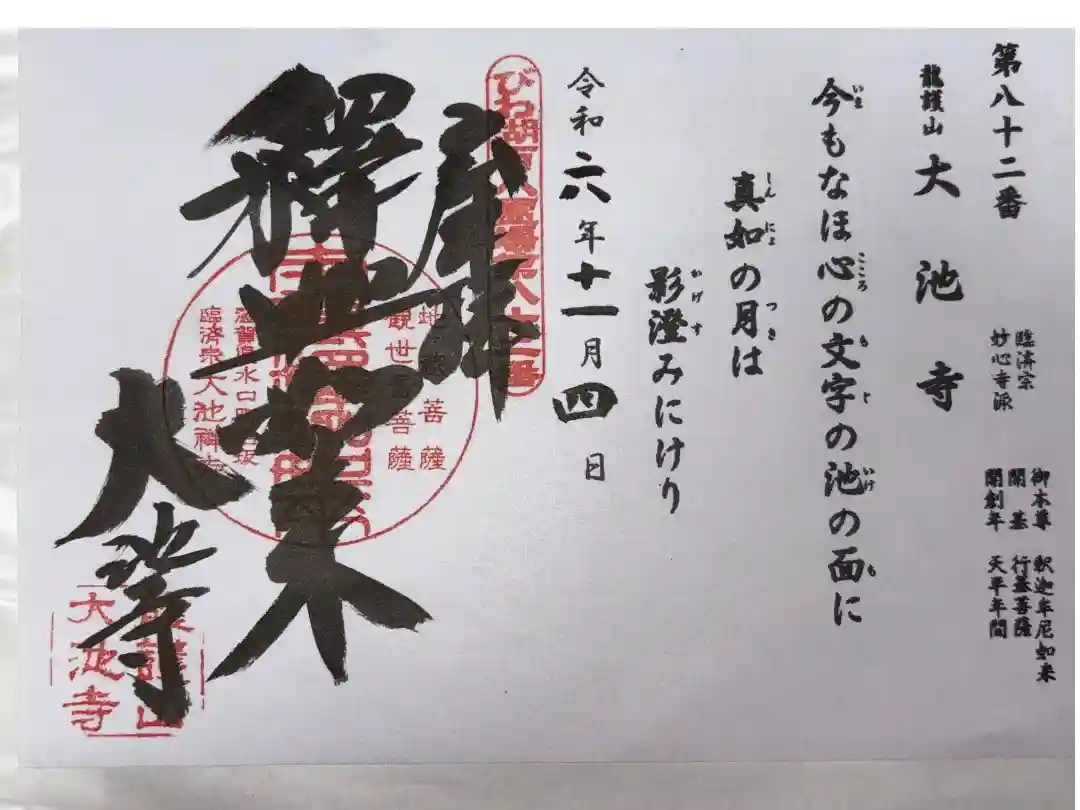 第八十二番
龍護山 大池寺
臨済宗
妙心寺派
御本尊 釈迦牟尼如来
開基 行基菩薩
開創年 天平年間
今もなほ心の文字の池の面に
いま こころ もじ いけ も
真如の月は
しんにょ つき
影澄みにけり
かげす
令和六年十一月四日
奉拝
釋迦如来
大池寺
びわ湖百八霊場第八十二番
地蔵菩薩
観世音菩薩
滋賀県水口町名坂
臨済宗大池禅寺
龍護山
大池寺